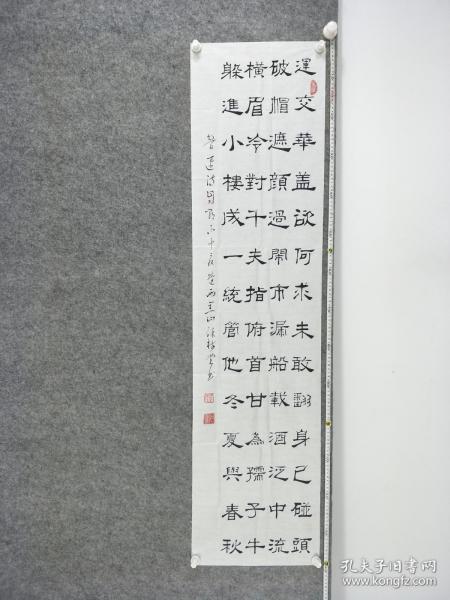 運交華盖欲何求未敢翻身已碰頭
破帽遮顔過鬧市漏船載酒泛中流
橫眉冷對千夫指俯首甘為孺子牛
躲進小樓成一統管他冬夏與春秋
魯迅詩
孔夫子旧书网
www.kongfz.com